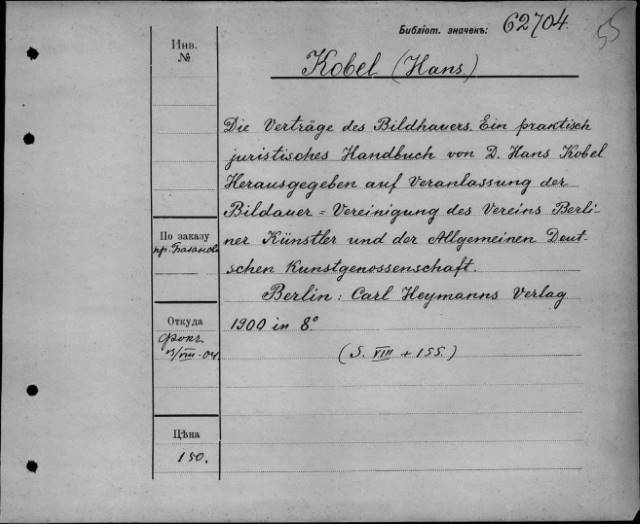 Библіот. значекъ: 62704.
55
Инв.
№
Kobel (Hans.)
Die Verträge des Bildhauers. Ein praktisch
juristisches Handbuch von D. Hans Kobel
Herausgegeben auf Veranlassung der
Bildauer = Vereinigung des Vereins Berli-
ner Künstler und der Allgemeinen Deut-
schen Kunstgenossenschaft.
Berlin: Carl Heymanns Verlag
1900 in 8º
(S. VIII + 155.)
По заказу
пр.
Откуда
Фокъ
/VIII - 04.
Цѣна
150.